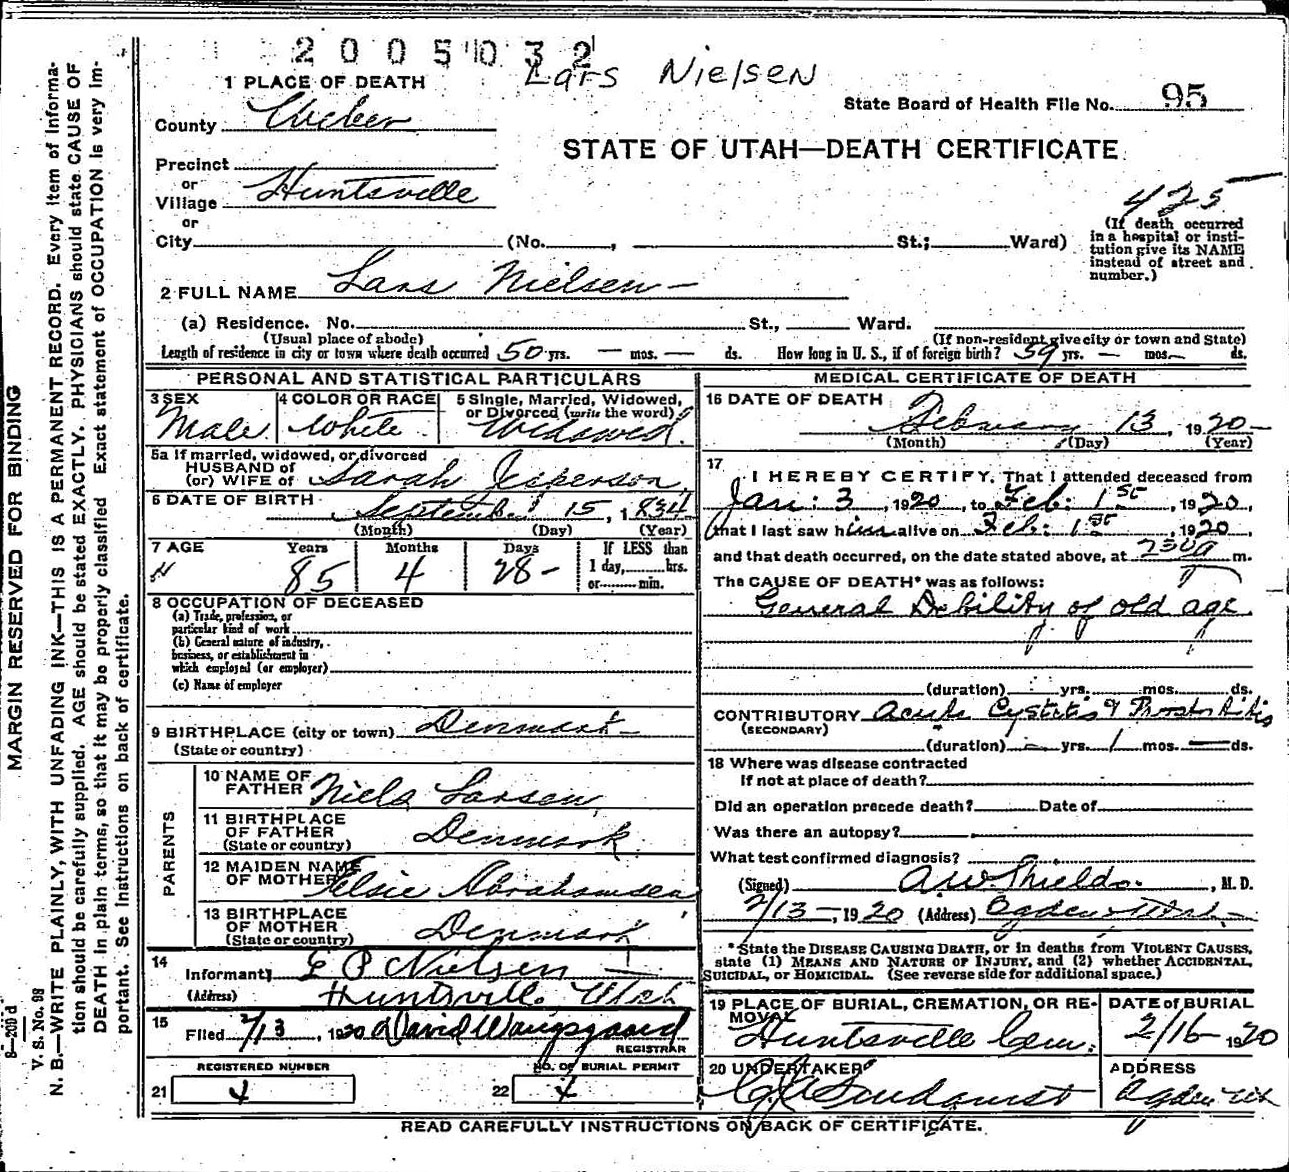 2005032
Lars Nielsen
1 PLACE OF DEATH
State Board of Health File No. 95
County Weber
STATE OF UTAH—DEATH CERTIFICATE
Precinct
or
Village Huntsville
or
425
City (No. , St.; Ward)
(If death occurred
in a hospital or insti-
tution give its NAME
instead of street and
number.)
2 FULL NAME Lars Nielsen
(a) Residence. No. St., Ward.
(Usual place of abode) (If non-resident give city or town and State)
Length of residence in city or town where death occurred 50 yrs. — mos. — ds. How long in U. S., if of foreign birth? 59 yrs. — mos. — ds.
PERSONAL AND STATISTICAL PARTICULARS
3 SEX
Male
4 COLOR OR RACE
White
5 Single, Married, Widowed,
or Divorced (write the word)
Widowed.
5a If married, widowed, or divorced
HUSBAND of
(or) WIFE of Sarah Jesperson
6 DATE OF BIRTH
September 15, 1834
(Month) (Day) (Year)
7 AGE Years Months Days
85 4 28 -
If LESS than
1 day, hrs.
or min.
8 OCCUPATION OF DECEASED
(a) Trade, profession, or
particular kind of work
(b) General nature of industry,
business, or establishment in
which employed (or employer)
(c) Name of employer
9 BIRTHPLACE (city or town) Denmark
(State or country)
PARENTS
10 NAME OF
FATHER Niels Larsen
11 BIRTHPLACE
OF FATHER Denmark
(State or country)
12 MAIDEN NAME
OF MOTHER Elsie Abrahamsen
13 BIRTHPLACE
OF MOTHER Denmark
(State or country)
14
Informant E P Nielsen
(Address) Huntsville Utah
15
Filed 2/13, 1920 David Wangsgaard
REGISTRAR
REGISTERED NUMBER
21 4
NO. OF BURIAL PERMIT
22 4
MEDICAL CERTIFICATE OF DEATH
16 DATE OF DEATH
February 13, 1920
(Month) (Day) (Year)
17
I HEREBY CERTIFY, That I attended deceased from
Jan: 3, 1920, to Feb: 1st, 1920,
that I last saw him alive on Feb: 1st, 1920,
and that death occurred, on the date stated above, at m.
The CAUSE OF DEATH* was as follows:
General Debility of old age
(duration) yrs. mos. ds.
CONTRIBUTORY Acute Cystitis & Prostatitis
(SECONDARY)
(duration) — yrs. 1 mos. — ds.
18 Where was disease contracted
if not at place of death?
Did an operation precede death? Date of
Was there an autopsy?
What test confirmed diagnosis?
(Signed) A.W. Shields, M. D.
2/13 —, 1920 (Address) Ogden Utah
*State the DISEASE CAUSING DEATH, or in deaths from VIOLENT CAUSES,
state (1) MEANS AND NATURE OF INJURY, and (2) whether ACCIDENTAL,
SUICIDAL, or HOMICIDAL. (See reverse side for additional space.)
19 PLACE OF BURIAL, CREMATION, OR RE-
MOVAL
Huntsville Cem.
DATE of BURIAL
2/16 - 1920
20 UNDERTAKER
Lindquist
ADDRESS
Ogden Utah
READ CAREFULLY INSTRUCTIONS ON BACK OF CERTIFICATE.
MARGIN RESERVED FOR BINDING
V. S. No. 98
N. B.—WRITE PLAINLY, WITH UNFADING INK—THIS IS A PERMANENT RECORD. Every item of informa-
tion should be carefully supplied. AGE should be stated EXACTLY. PHYSICIANS should state CAUSE OF
DEATH in plain terms, so that it may be properly classified Exact statement of OCCUPATION is very im-
portant. See Instructions on back of certificate.